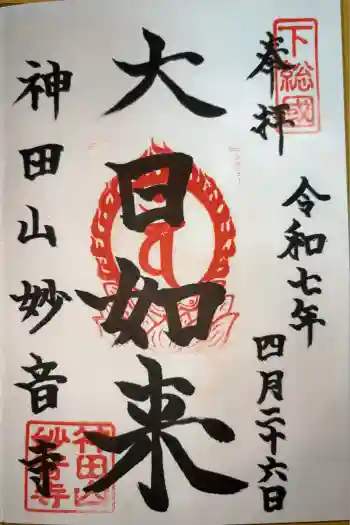 奉拝
下総國
令和七年
四月二十六日
大日如来
神田山妙音寺
神田山
妙音寺